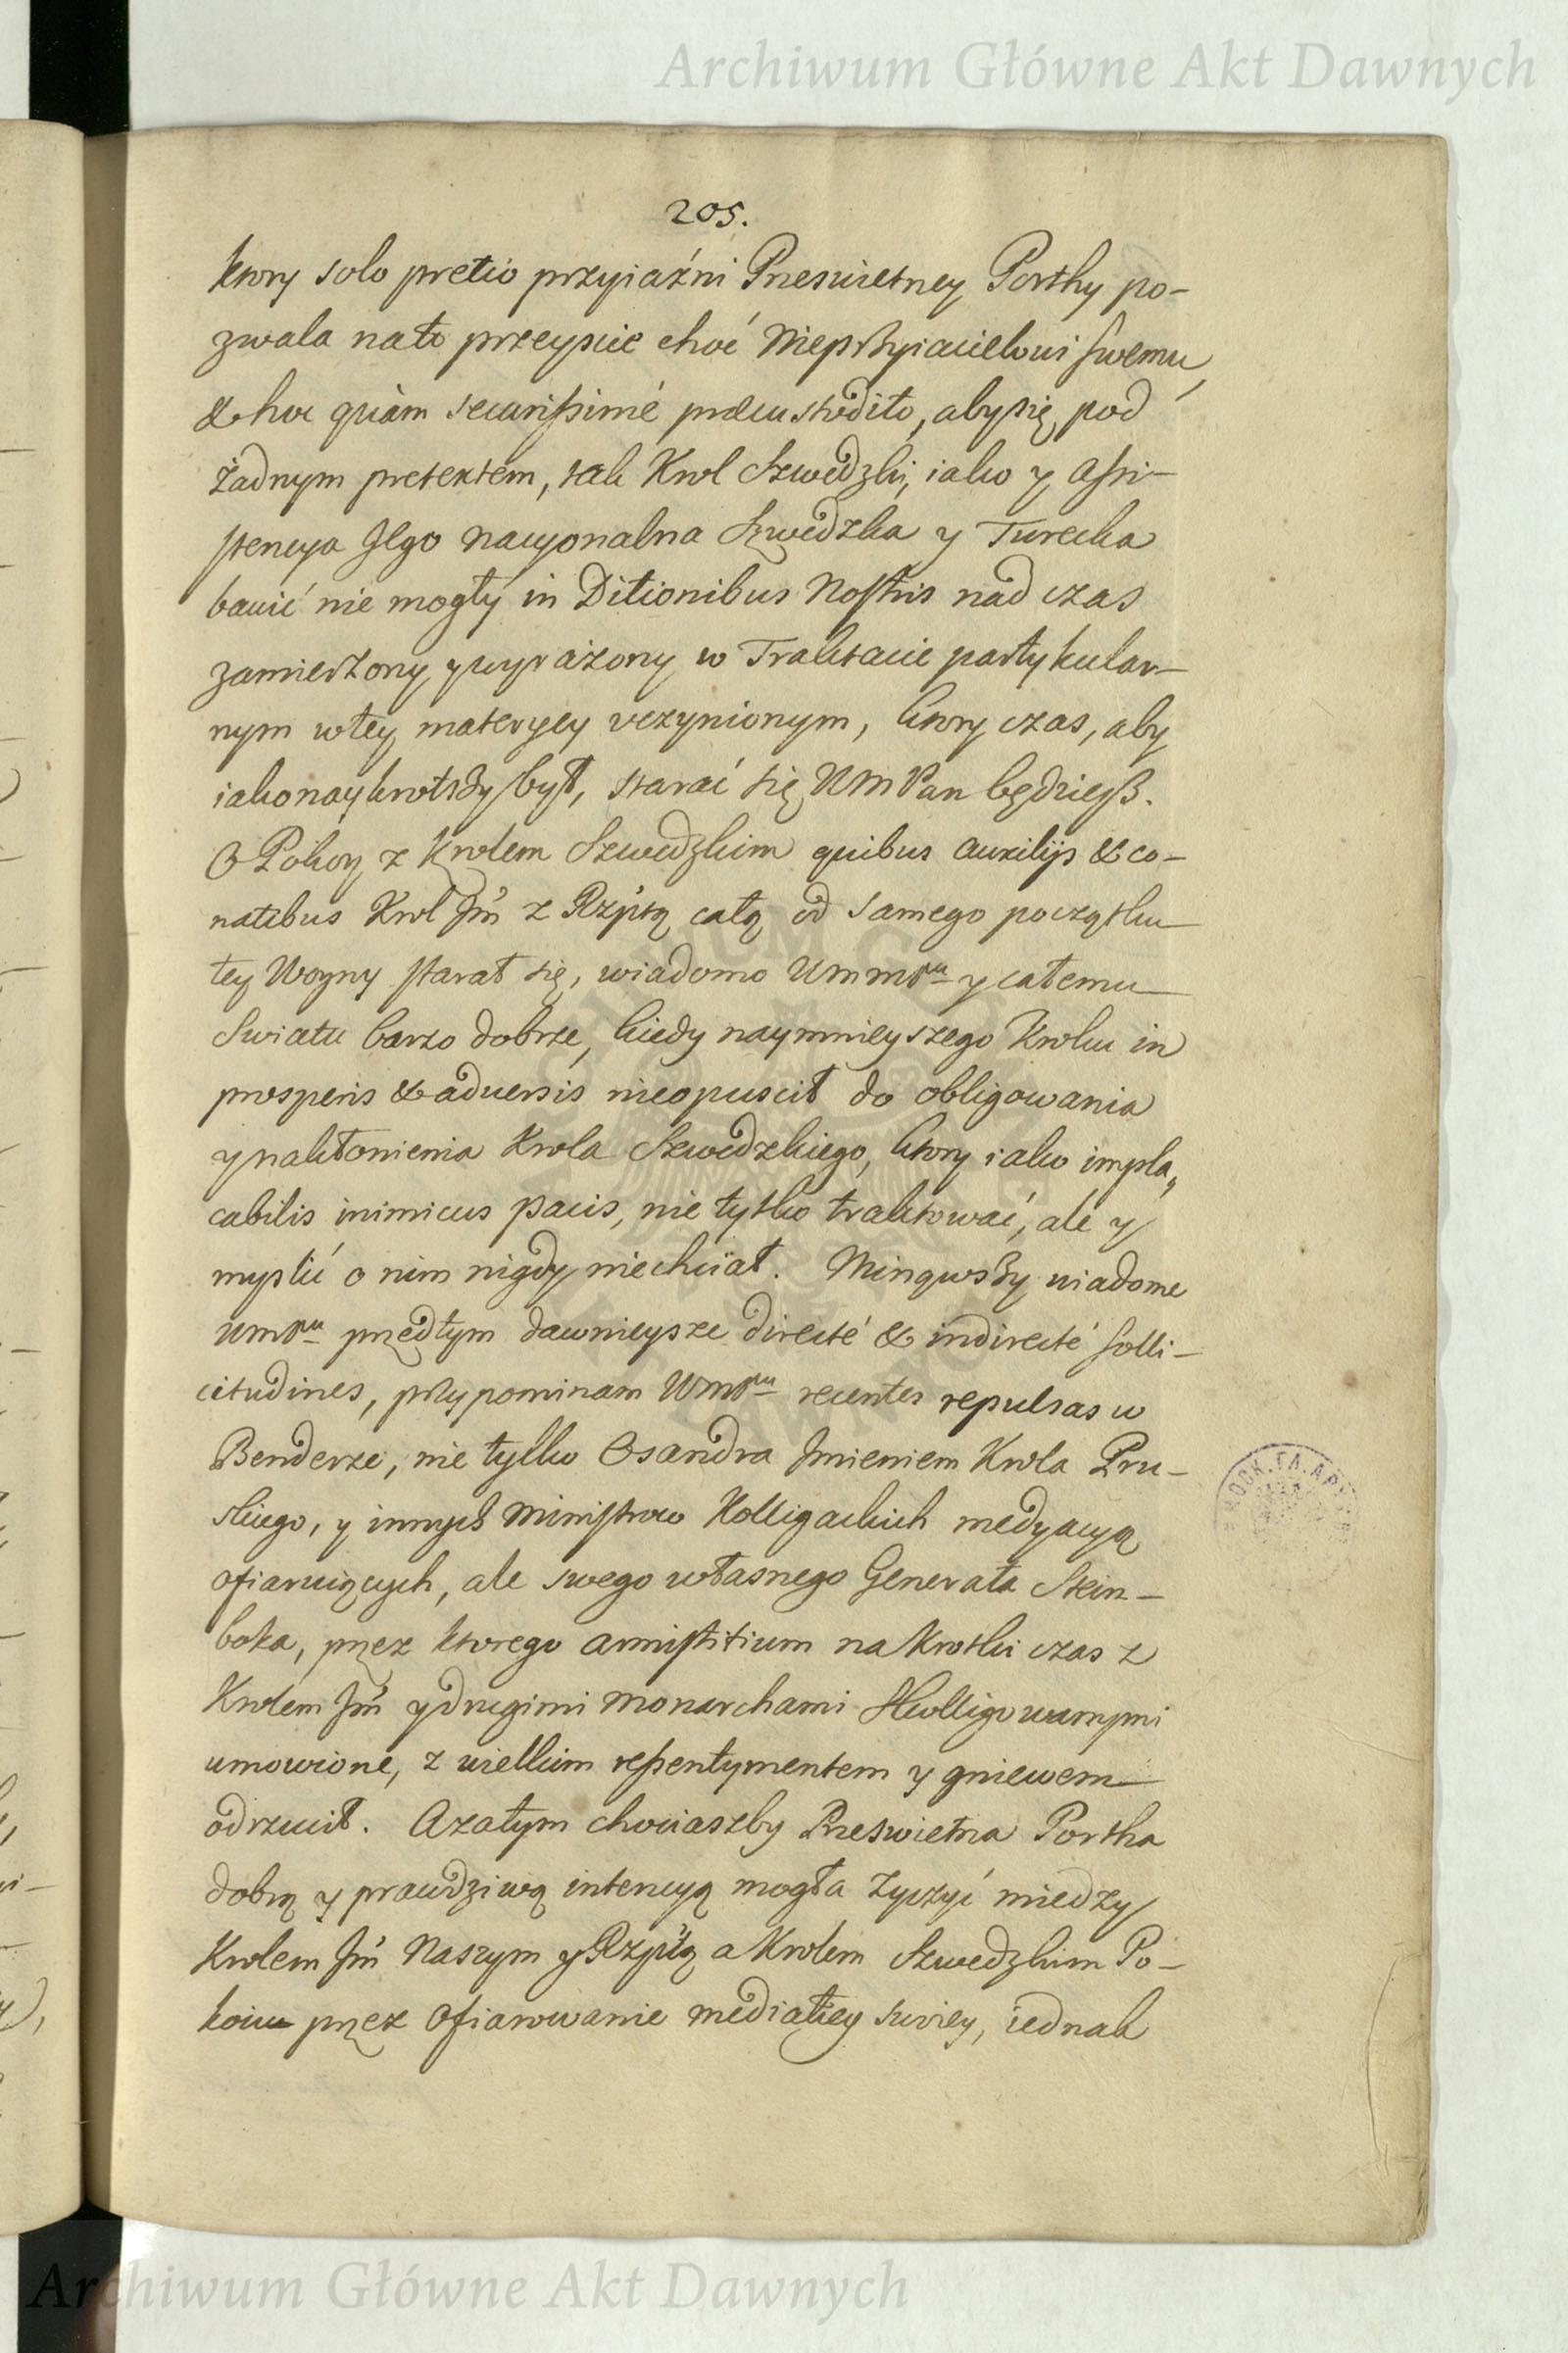 Archiwum Główne Akt Dawnych
205.
ktory solo pretio przyiaźni Przeswietney Porthy po-
zwala nato przeyscie choć Nieprzyiacielowi swemu,
& hoc quàm securissimé praecustodito, aby się pod
żadnym pretextem, tak Krol Szwedzki, iako y assi-
stencya Jego nacyonalna Szwedzka y Turecka
bawić nie mogły in Ditionibus Nostris nad czas
zamierzony y wyrażony w Traktacie partykular-
nym wtey materyey uczynionym, ktory czas, aby
iakonaykrotszy był, starać się WM Pan będziesz.
O Pokoy z Krolem Szwedzkim quibus auxilijs & co-
natibus Krol Jm z Rzptą całą od samego początku
tey Woyny starał się, wiadomo Wmmu y całemu
Swiatu barzo dobrze, kiedy naymnieyszego Kroku in
prosperis & adversis nieopuscił do obligowania
y nakłonienia Krola Szwedzkiego, ktory iako impla„
cabilis inimicus pacis, nie tylko traktować, ale y
myslić o nim nigdy niechciał. Minąwszy wiadome
WmPnu przedtym dawnieysze directé & indirecté solli-
citudines, przypominam WmPnu recentes repulsas w
Benderze, nie tylko Osandra Jmieniem Krola Pru-
skiego, y innych Ministrow Kolligackich medyacyą
ofiaruiących, ale swego własnego Generała Stein-
boka, przez ktorego armistitium na krotki czas z
Krolem Jm y drugimi Monarchami Skolligowanymi
umowione, z wielkim ressentymentem y gniewem
odrzucił. Azatym chociaszby Przeswietna Portha
dobrą y prawdziwą intencyą mogła życzyć miedzy
Krolem Jm Naszym y Rzptą a Krolem Szwedzkim Po-
koiu przez ofiarowanie mediatiey swoiey, iednak
Archiwum Główne Akt Dawnych